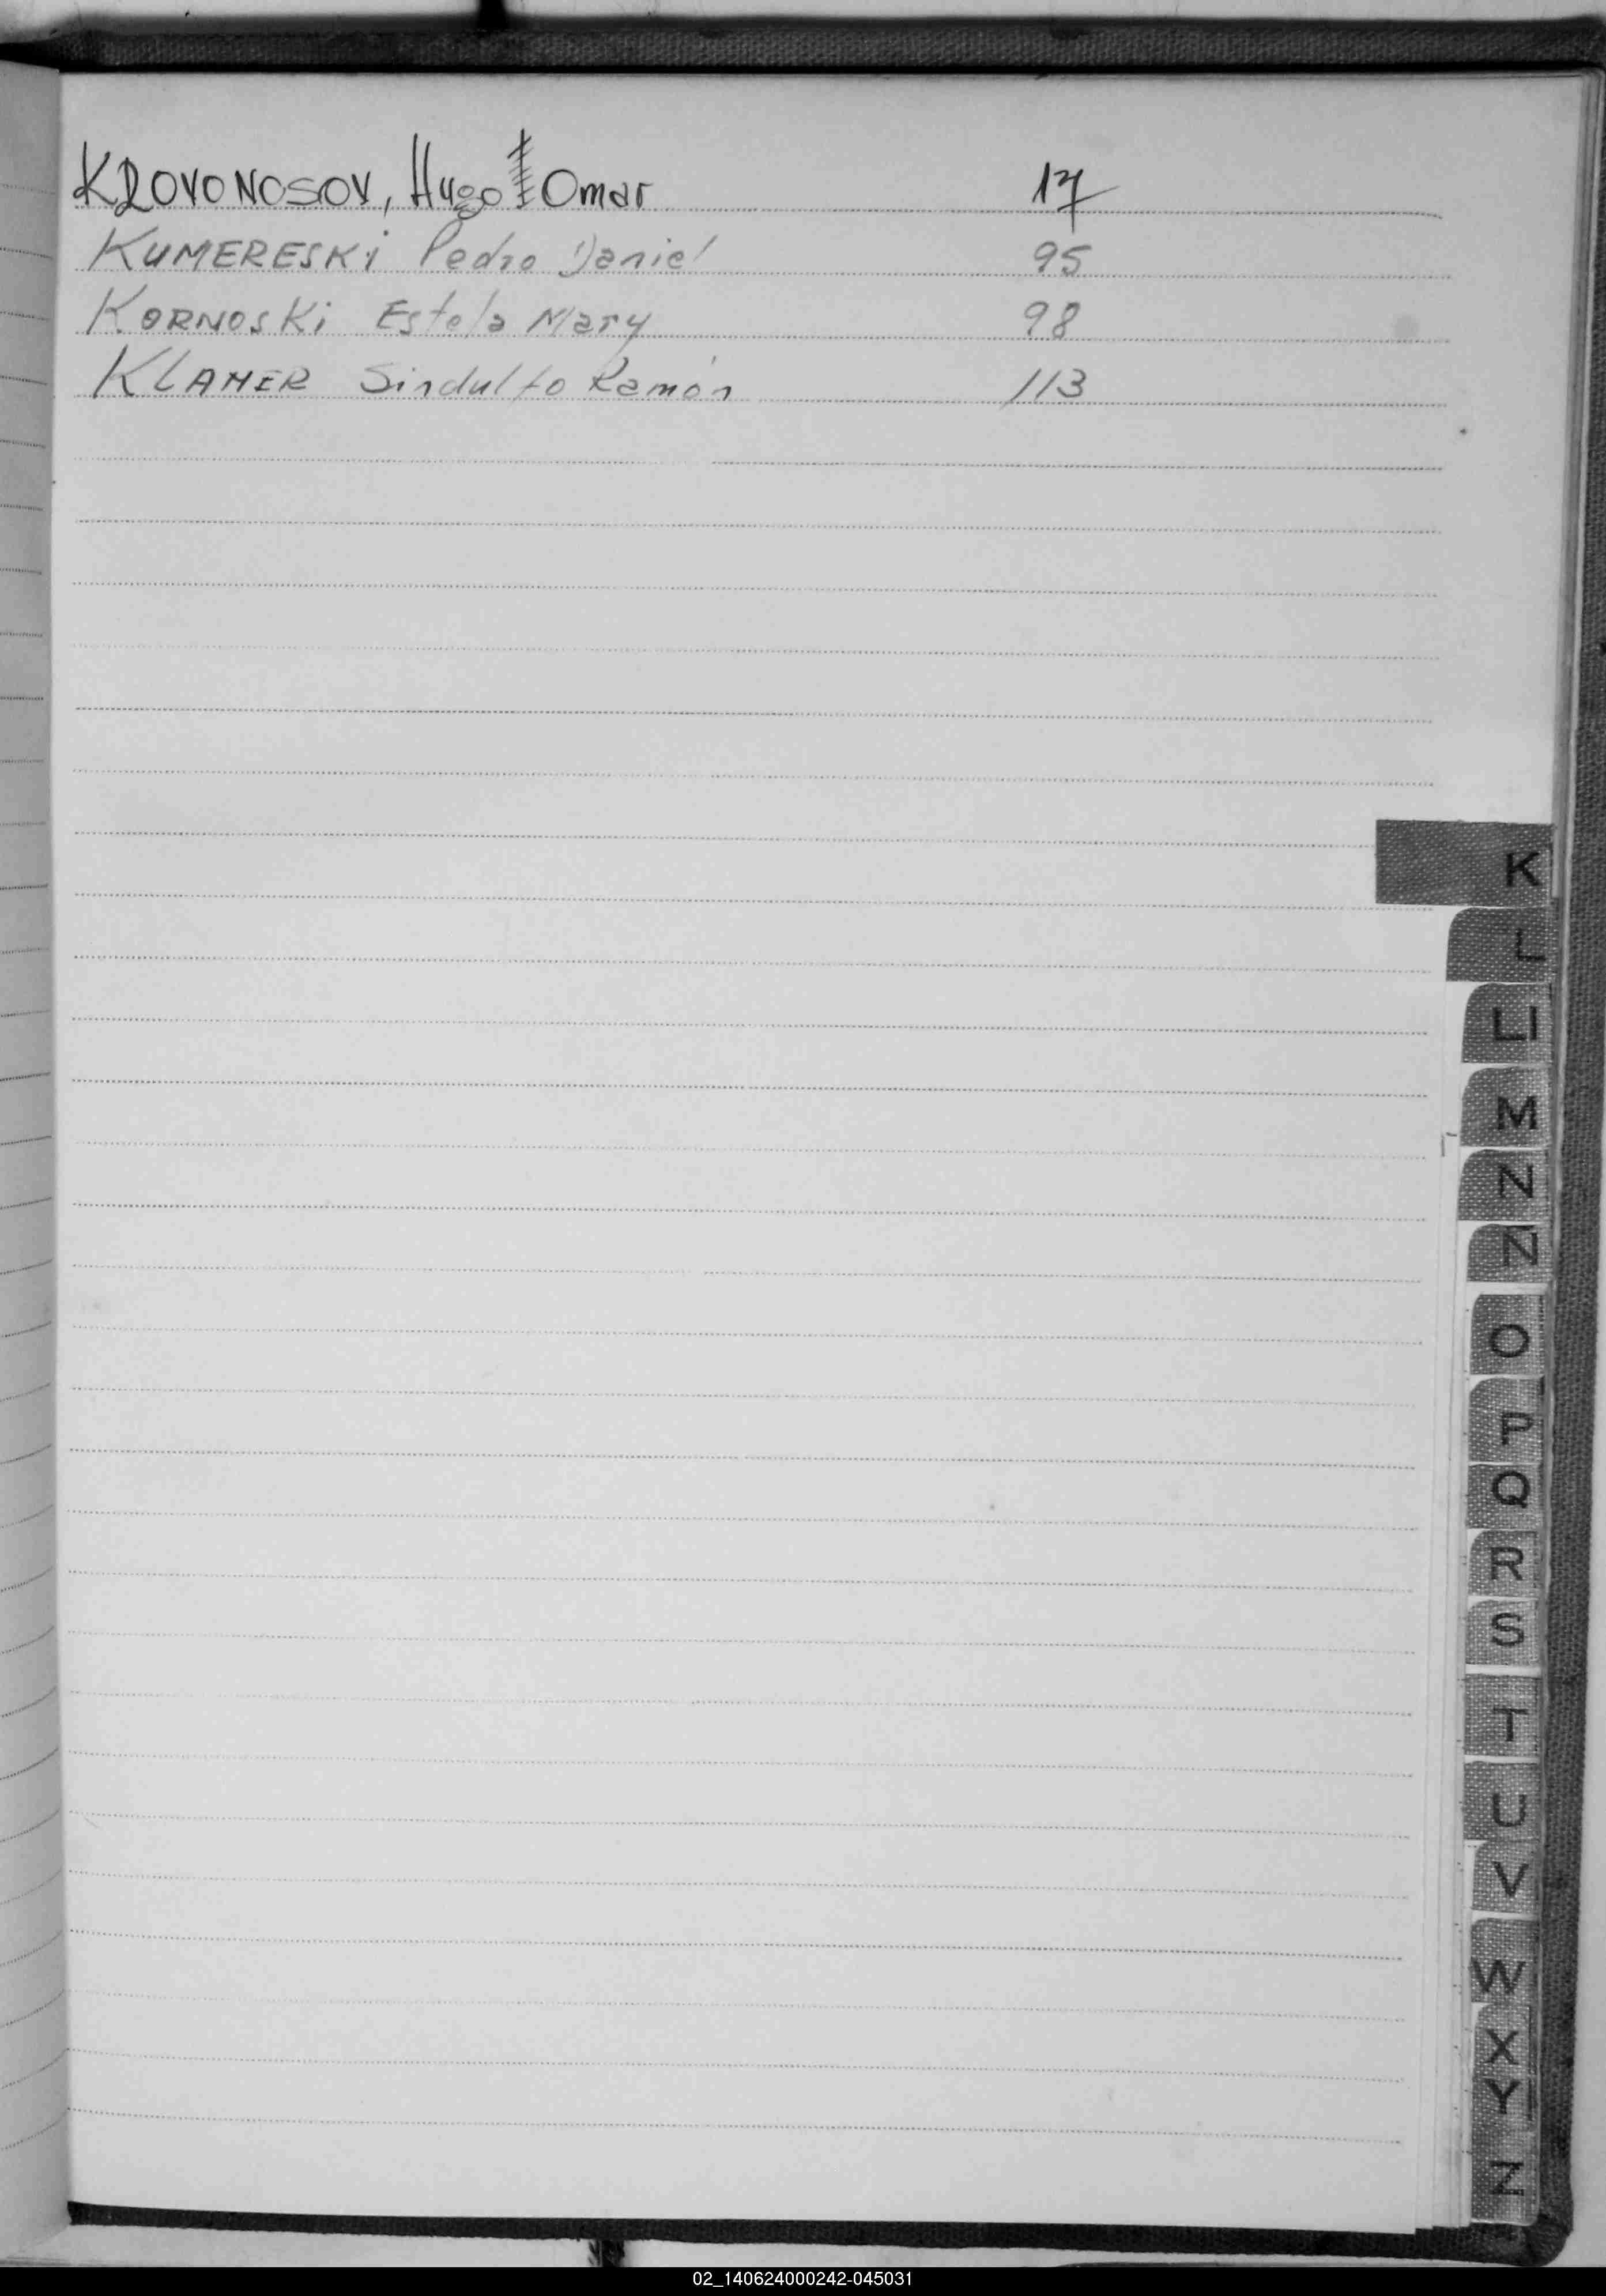 KROVONOSOV, Hugo Omar 17
KUMERESKi Pedro Daniel 95
KORNOSKi Estela Mary 98
KLAHER Sindulfo Ramón 113
K
L
Ll
M
N
Ñ
O
P
Q
R
S
T
U
V
W
X
Y
Z
02_140624000242-045031